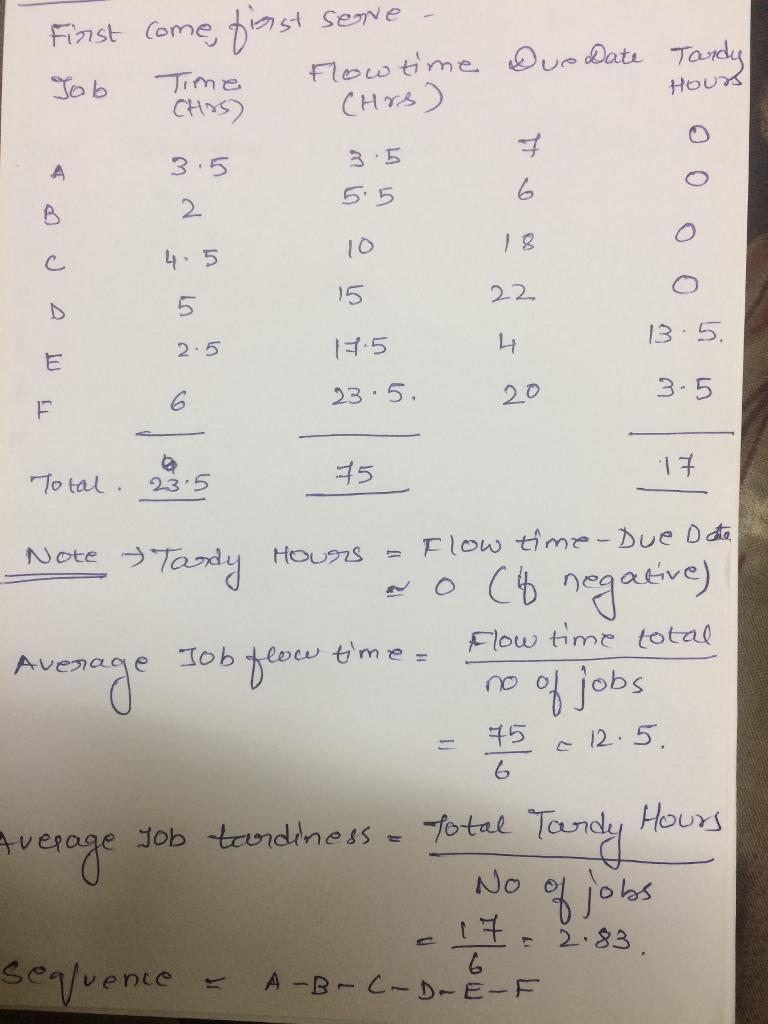 First come, first serve -
Job Time (Hrs) Flow time (Hrs) Due Date Tardy Hours
A 3.5 3.5 7 0
B 2 5.5 6 0
C 4.5 10 18 0
D 5 15 22 0
E 2.5 17.5 4 13.5.
F 6 23.5. 20 3.5
Total. 23.5 75 17
Note → Tardy Hours = Flow time - Due Date
≈ 0 (if negative)
Average Job flow time = Flow time total / no of jobs
= 75/6 = 12.5.
Average Job tardiness = Total Tardy Hours / No of jobs
= 17/6 = 2.83.
Sequence = A-B-C-D-E-F